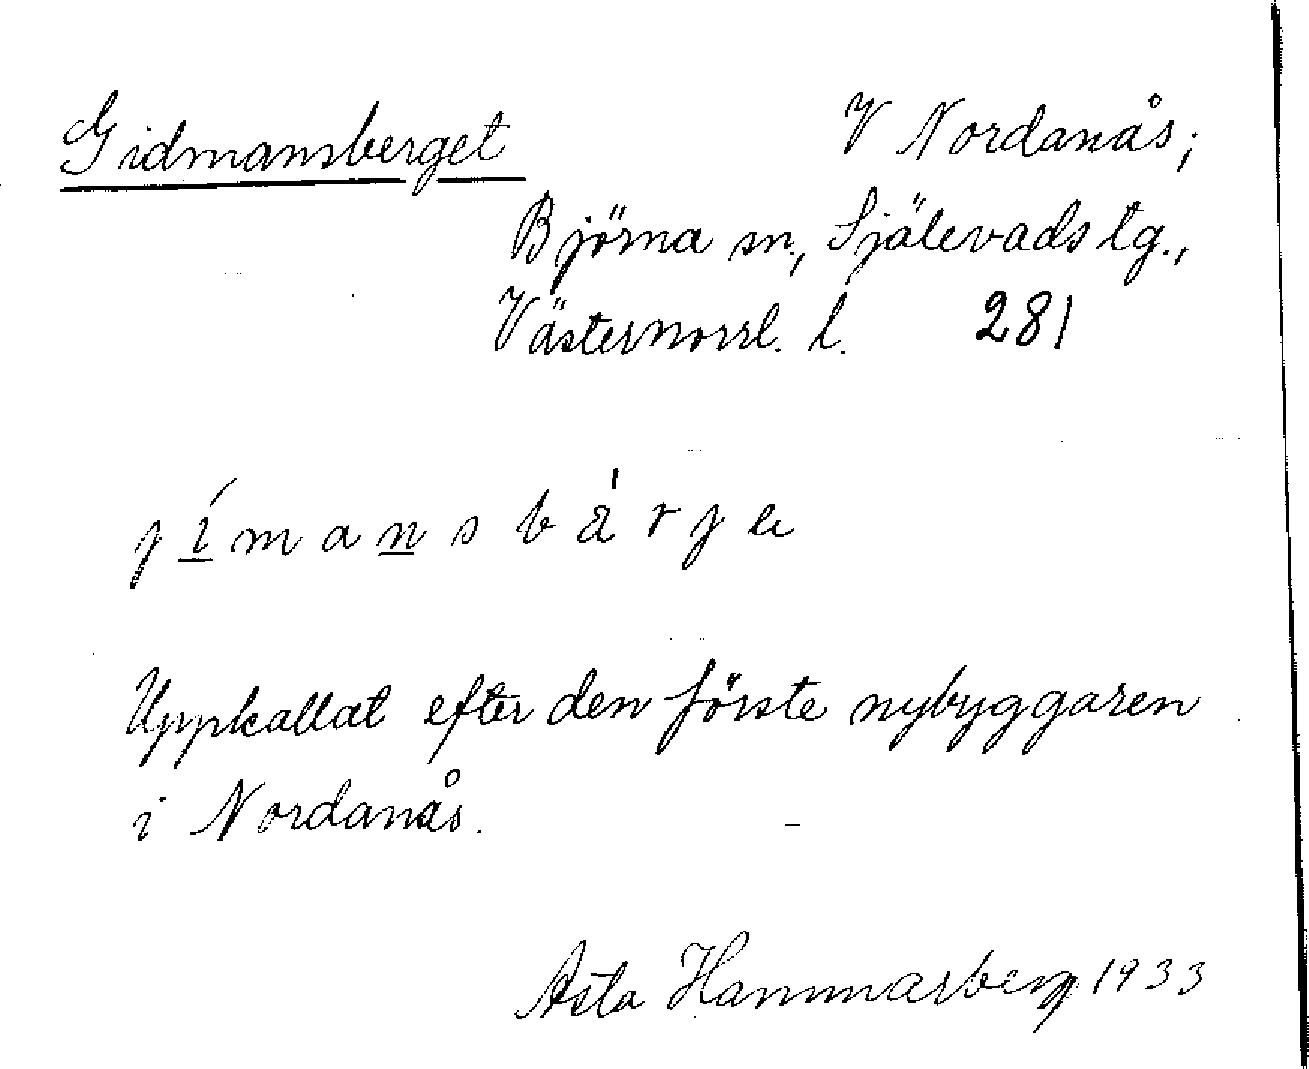 Gidmansberget V Nordanås;
Björna sn, Själevads tg.,
Västernorrl. l. 281
j í m a n s b ä́ r j e
Uppkallat efter den förste nybyggaren
i Nordanås.
Asta Hammarberg 1933